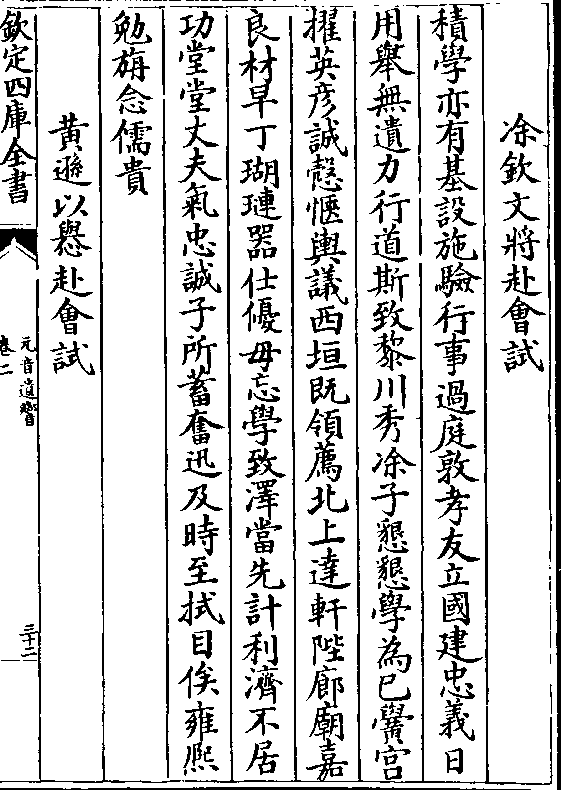 凃欽文將赴會試
積學亦有基設施驗行事過庭敦孝友立國建忠義日
用舉無遺力行道斯致黎川秀凃子懇懇學為已黌宮
擢英彦誠慤愜輿議西垣旣領薦北上達軒陛廊廟嘉
良材早丁瑚璉器仕優毋忘學致澤當先計利濟不居
功堂堂丈夫氣忠誠子所蓄奮迅及時至拭目俟雍熙
勉旃念儒貴
黄遜以愚赴會試
欽定四庫全書
元音遺響
卷二
三十二